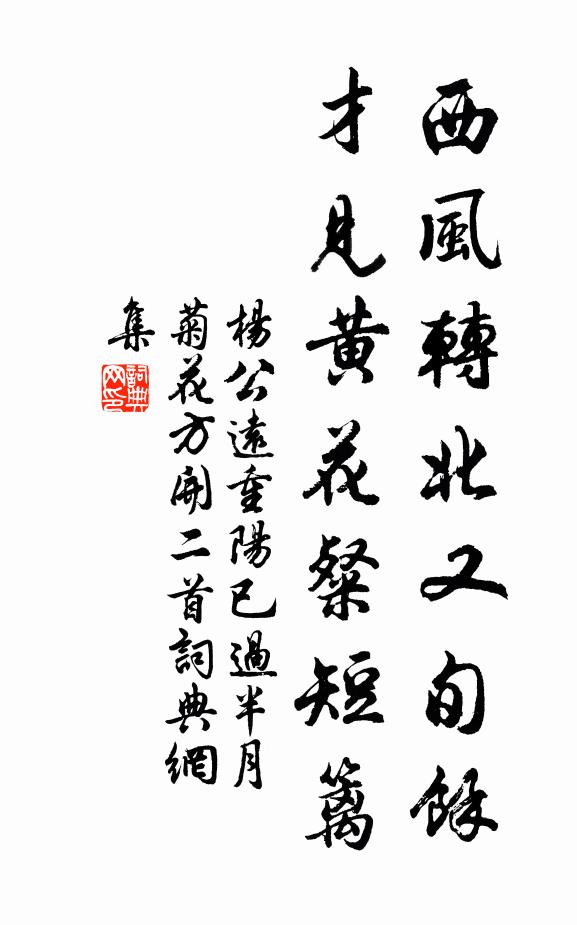 西風轉北又旬餘
才見黃花粲短籬
楊公遠重陽已過半月
菊花方開二首詞典網
集
詞典
网印